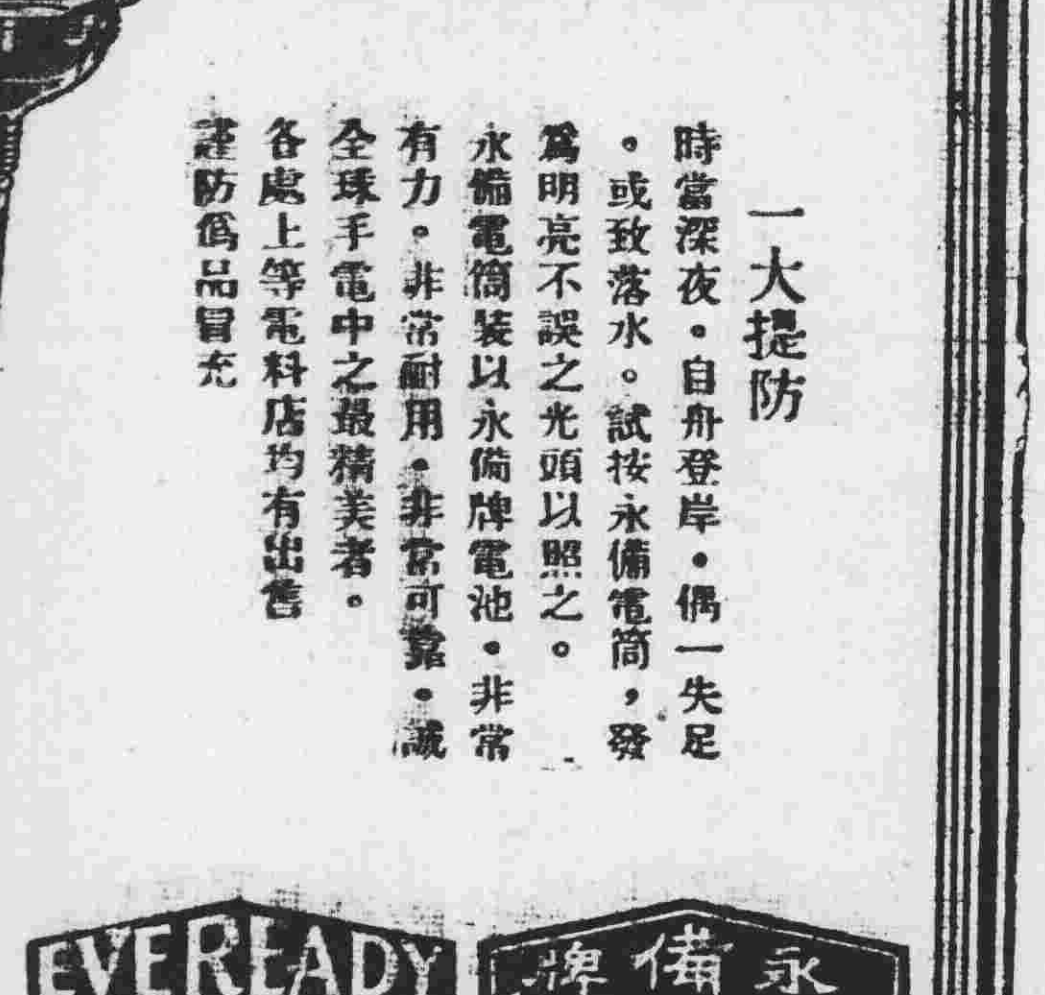 一大提防
時當深夜。自舟登岸。偶一失足
。或致落水。試按永備電筒，發
爲明亮不誤之光頭以照之。
永備電筒裝以永備牌電池。非常
有力。非常耐用。非常可靠。誠
全球手電中之最精美者。
各處上等電料店均有出售
謹防僞品冒充
EVEREADY
永備牌